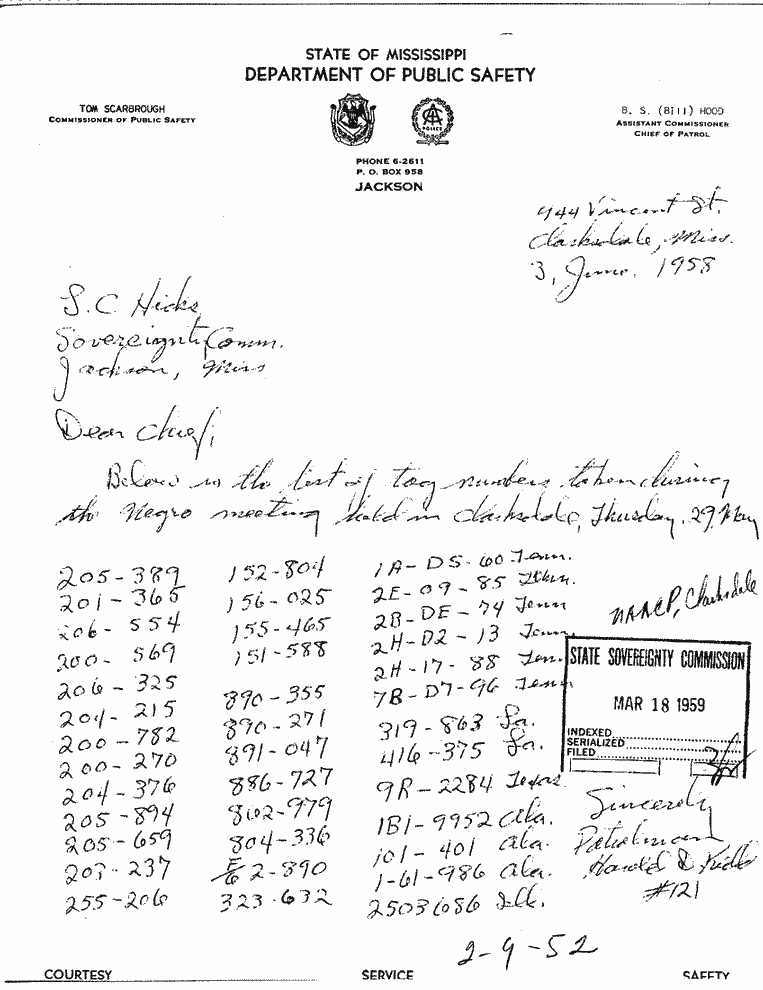 STATE OF MISSISSIPPI
DEPARTMENT OF PUBLIC SAFETY
TOM SCARBROUGH
COMMISSIONER OF PUBLIC SAFETY
B. S. (Bill) HOOD
ASSISTANT COMMISSIONER
CHIEF OF PATROL
POLICE
PHONE 6-2611
P. O. BOX 958
JACKSON
444 Vincent St.
Clarksdale, Miss.
3, June, 1958
S.C Hicks
Sovereignty Comm.
Jackson, Miss
Dear Chief,
Below is the list of tag numbers taken during
the Negro meeting held in Clarksdale, Thursday, 29, May
205-389 152-804 1A-DS-60 Tenn.
201-365 156-025 2E-09-85 Tenn.
206-554 155-465 2B-DE-74 Tenn
200-569 151-588 2H-D2-13 Tenn.
206-325 2H-17-88 Ten.
204-215 890-355 7B-D7-96 Tenn
200-782 890-271 319-863 La.
200-270 891-047 416-375 La.
204-376 886-727 9R-2284 Texas
205-894 802-979 1B1-9952 Ala.
205-659 804-336 101-401 Ala.
203-237 2-890 1-61-986 Ala.
255-206 323-632 2503686 Ill.
NAACP, Clarksdale
STATE SOVEREIGNTY COMMISSION
MAR 18 1959
INDEXED
SERIALIZED
FILED
Sincerely
Patrolman
Harold
#121
2-9-52
COURTESY SERVICE SAFETY